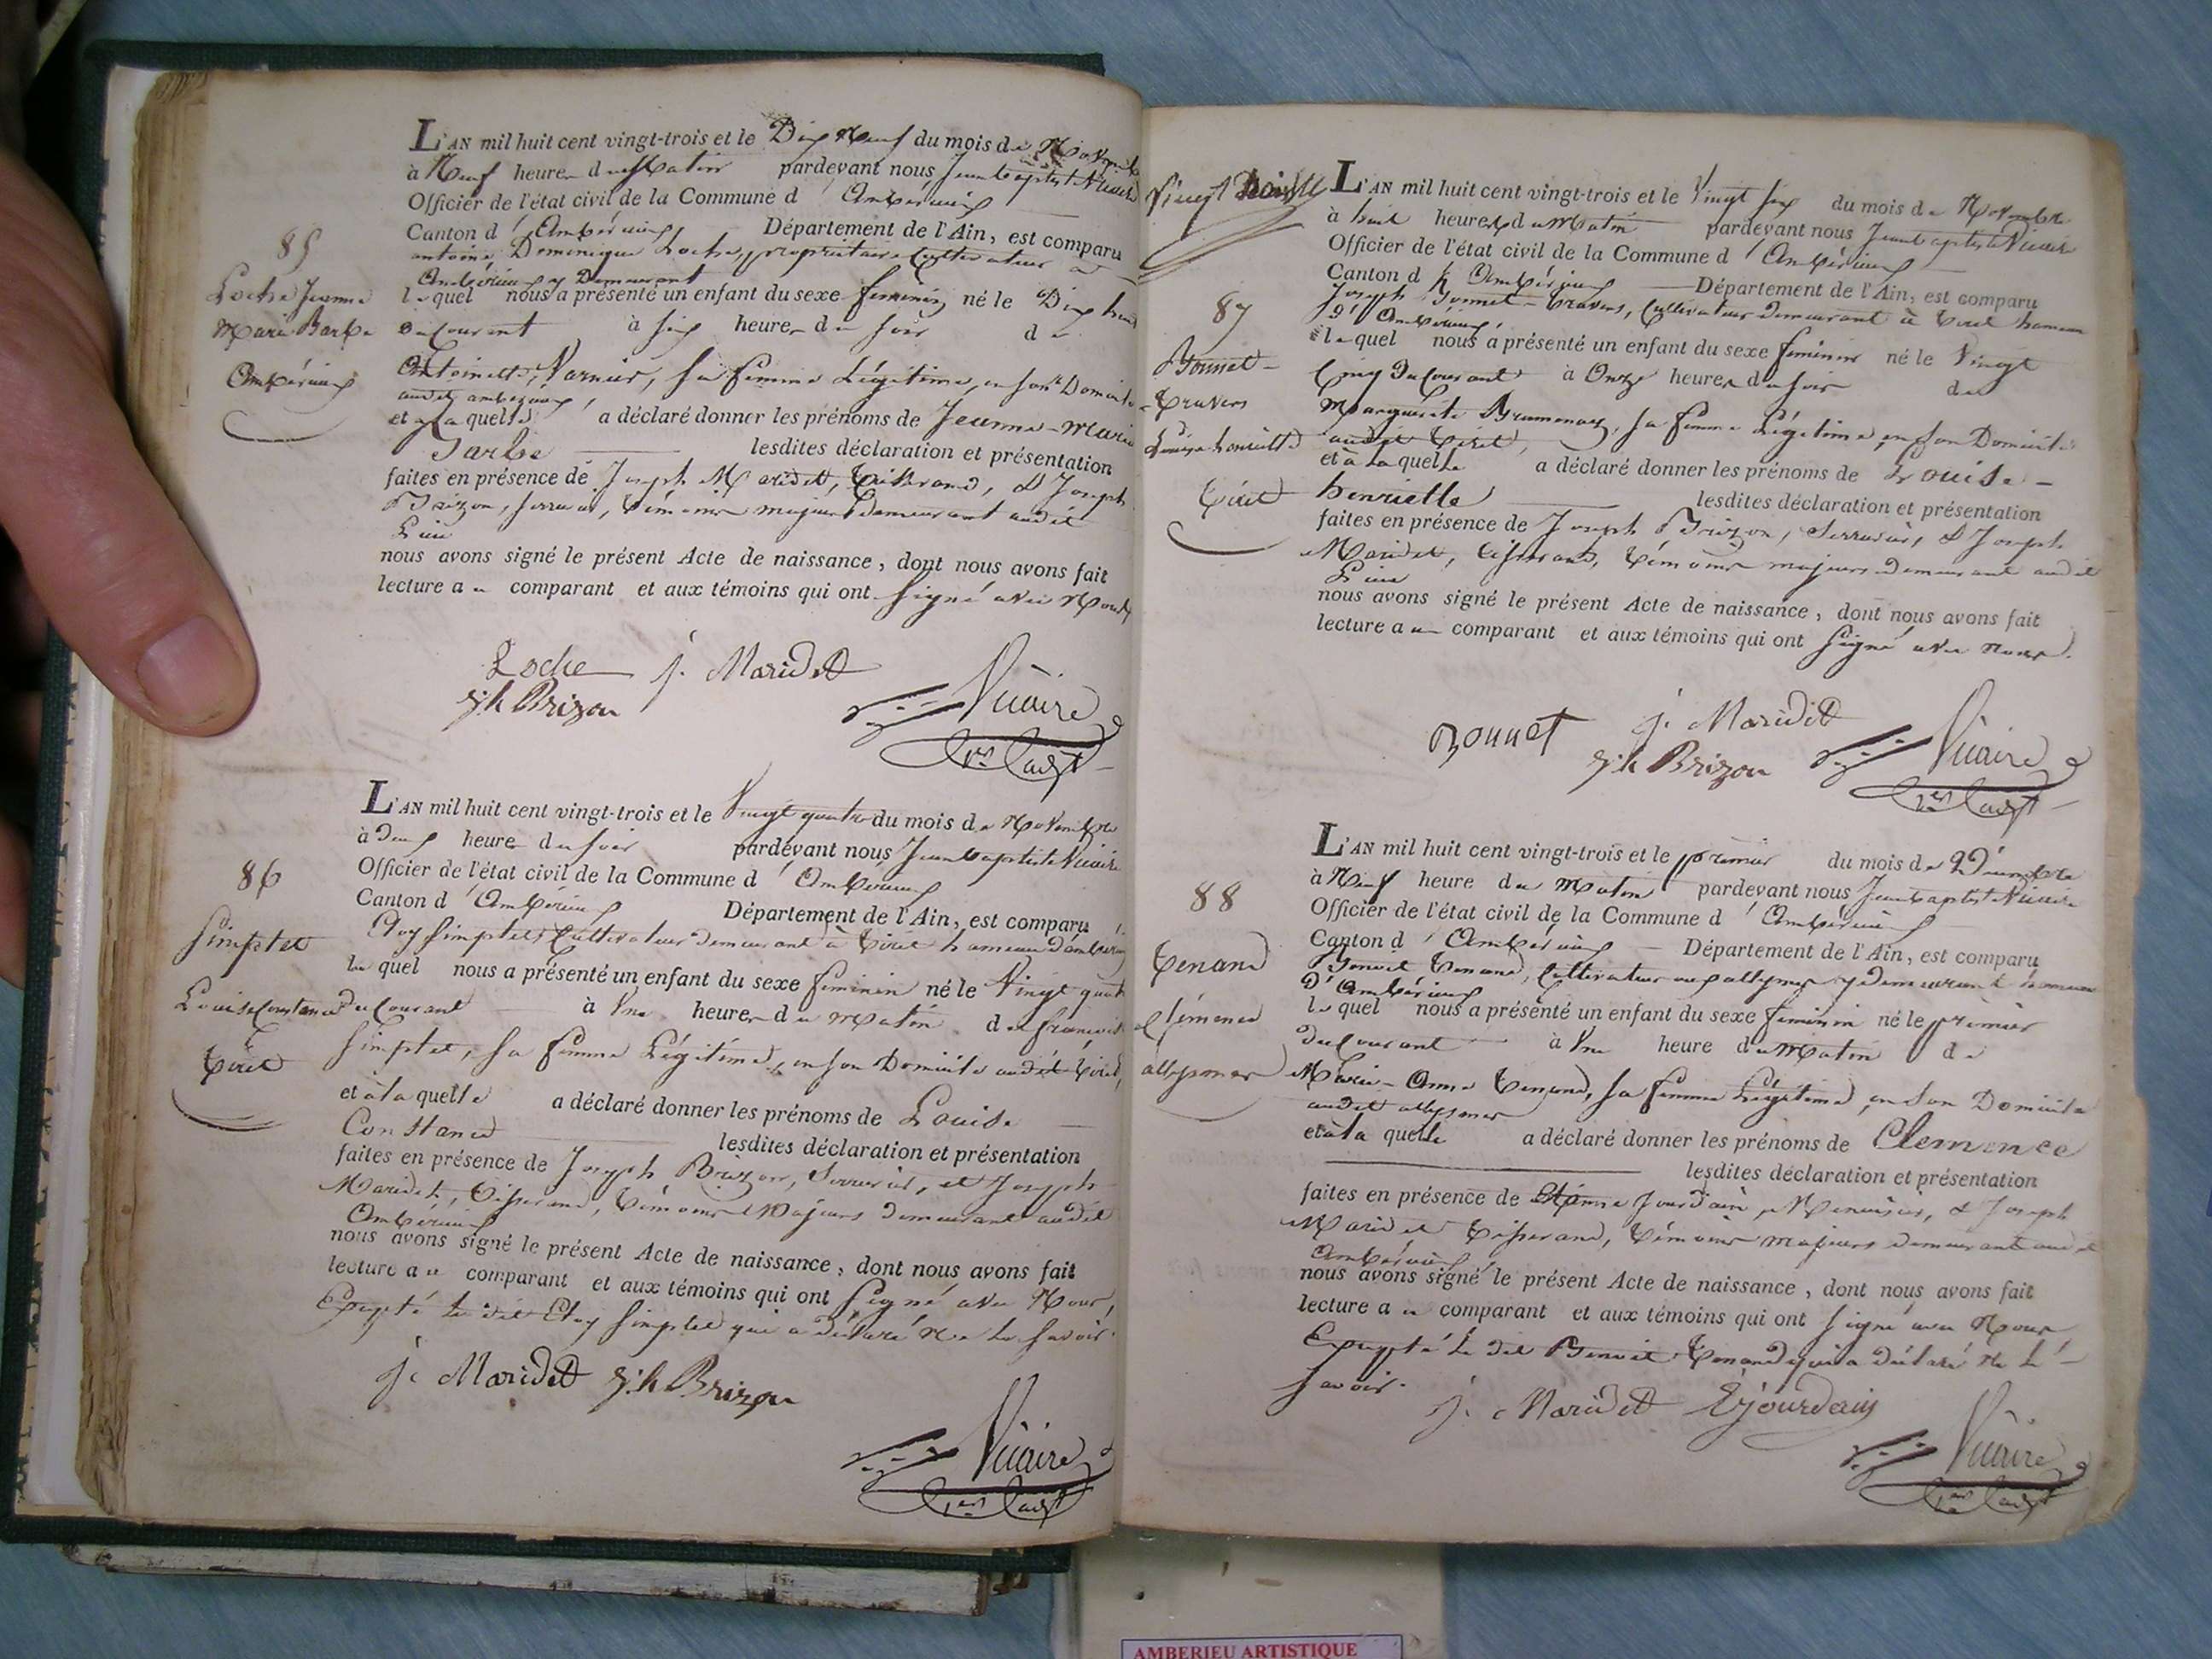 L'AN mil huit cent vingt-trois et le Dix Neuf du mois de Novembre
à Neuf heures du Matin pardevant nous Jean Baptiste Vicaire
Officier de l'état civil de la Commune d'Ambérieux
Canton d'Ambérieux Département de l'Ain, est comparu
antoine Dominique Loche, propriétaire Cultivateur a
Ambérieux y Demeurant
85
Loche Jeanne
Marie Barbe
Ambérieux
lequel nous a présenté un enfant du sexe feminin né le Dix huit
du Courant à six heures du soir de
Antoinette Varnier, sa femme Légitime, en son Domicile
audit ambérieux,
et à laquelle a déclaré donner les prénoms de Jeanne-Marie
Barbe lesdites déclaration et présentation
faites en présence de Joseph Maridet, tisserand, & Joseph
Brizon, serrurier, témoins majeurs demeurant audit
Lieu
nous avons signé le présent Acte de naissance, dont nous avons fait
lecture au comparant et aux témoins qui ont signé avec Nous
Loche j. Maridet
jh Brizon Vicaire
L'AN mil huit cent vingt-trois et le Vingt quatre du mois de Novembre
à deux heures du soir pardevant nous Jean Baptiste Vicaire
Officier de l'état civil de la Commune d'Ambérieux
Canton d'Ambérieux Département de l'Ain, est comparu
86
Simptet
Louise Constance
Tiret
Eloy Simptet, Cultivateur demeurant à Tiret hameau d'ambérieux
lequel nous a présenté un enfant du sexe feminin né le Vingt quatre
du Courant à Une heures du matin de françoise
Simptet, sa femme Légitime, en son Domicile audit Tiret,
et à laquelle a déclaré donner les prénoms de Louise
Constance lesdites déclaration et présentation
faites en présence de Joseph Brizon, Serrurier, et Joseph
Maridet, Tisserand, témoins Majeurs demeurant audit
Ambérieux
nous avons signé le présent Acte de naissance, dont nous avons fait
lecture au comparant et aux témoins qui ont signé avec Nous,
Excepté le dit Eloy Simptet qui a déclaré Ne le savoir.
j. Maridet jh Brizon
Vicaire
Vingt
L'AN mil huit cent vingt-trois et le Vingt six du mois de Novembre
à huit heures du Matin pardevant nous Jean Baptiste Vicaire
Officier de l'état civil de la Commune d'Ambérieux
Canton d'Ambérieux Département de l'Ain, est comparu
87
Bonnet-
Travers
Louise henriette
Tiret
Joseph Bonnet-Travers, Cultivateur demeurant à Tiret hameau
d'Ambérieux,
lequel nous a présenté un enfant du sexe feminin né le Vingt
Cinq du Courant à Onze heures du soir de
Marguerite, sa femme Légitime, en son Domicile
audit Tiret,
et à laquelle a déclaré donner les prénoms de Louise-
henriette lesdites déclaration et présentation
faites en présence de Joseph Brizon, Serrurier, & Joseph
Maridet, tisserand, témoins majeurs demeurant audit
Lieu
nous avons signé le présent Acte de naissance, dont nous avons fait
lecture au comparant et aux témoins qui ont signé avec nous.
Bonnet j. Maridet
jh Brizon Vicaire
L'AN mil huit cent vingt-trois et le premier du mois de Décembre
à Neuf heure du Matin pardevant nous Jean Baptiste Vicaire
Officier de l'état civil de la Commune d'Ambérieux
Canton d'Ambérieux Département de l'Ain, est comparu
88
Tenand
Clémence
allymes
Benoit Tenand, Cultivateur aux allymes y demeurant hameau
d'Ambérieux
lequel nous a présenté un enfant du sexe feminin né le premier
du Courant à Une heure du Matin de
Marie-Anne Tenand, sa femme Légitime, en son Domicile
audit allymes
et à la quelle a déclaré donner les prénoms de Clemence
lesdites déclaration et présentation
faites en présence de Etienne Jourdain, Menuisier, & Joseph
Maridet Tisserand, témoins majeurs demeurant audit
Ambérieux,
nous avons signé le présent Acte de naissance, dont nous avons fait
lecture au comparant et aux témoins qui ont signé avec Nous
Excepté le dit Benoit Tenand qui a déclaré Ne le
savoir.
j. Maridet E jourdain
Vicaire
AMBERIEU ARTISTIQUE